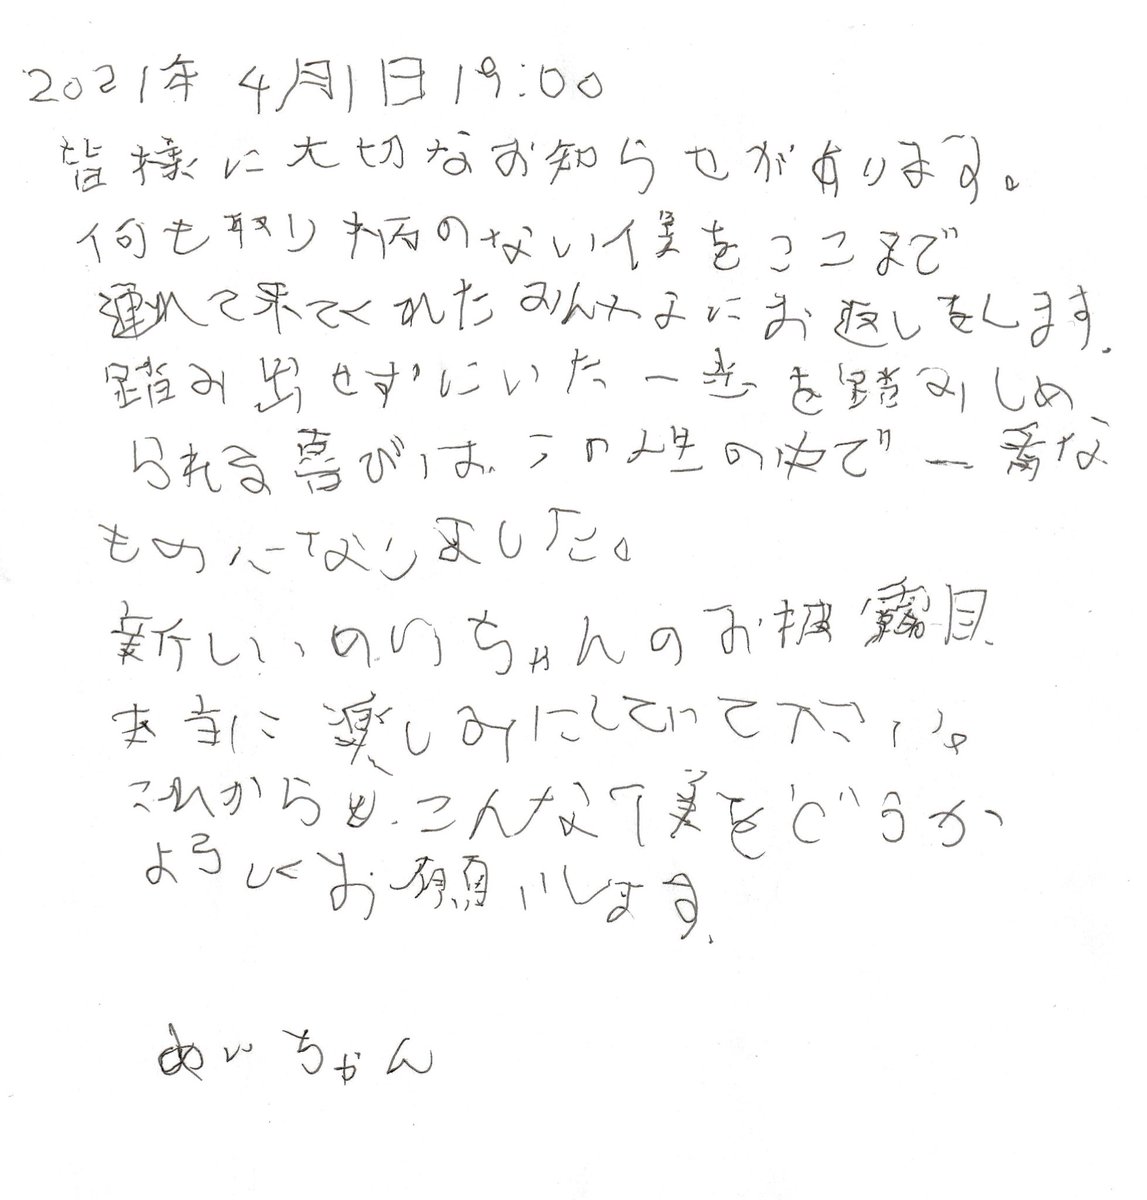 2021年 4月1日 19:00
皆様に大切なお知らせがあります。
何も取り柄のない僕をここまで
連れて来てくれたみんなにお返しをします.
踏み出せずにいた一歩を踏みしめ
られる喜びは、この人生の中で一番な
ものになりました。
新しいめいちゃんのお披露目、
本当に楽しみにしていて下さい。
これからも、こんな僕をどうか
よろしくお願いします.
めいちゃん